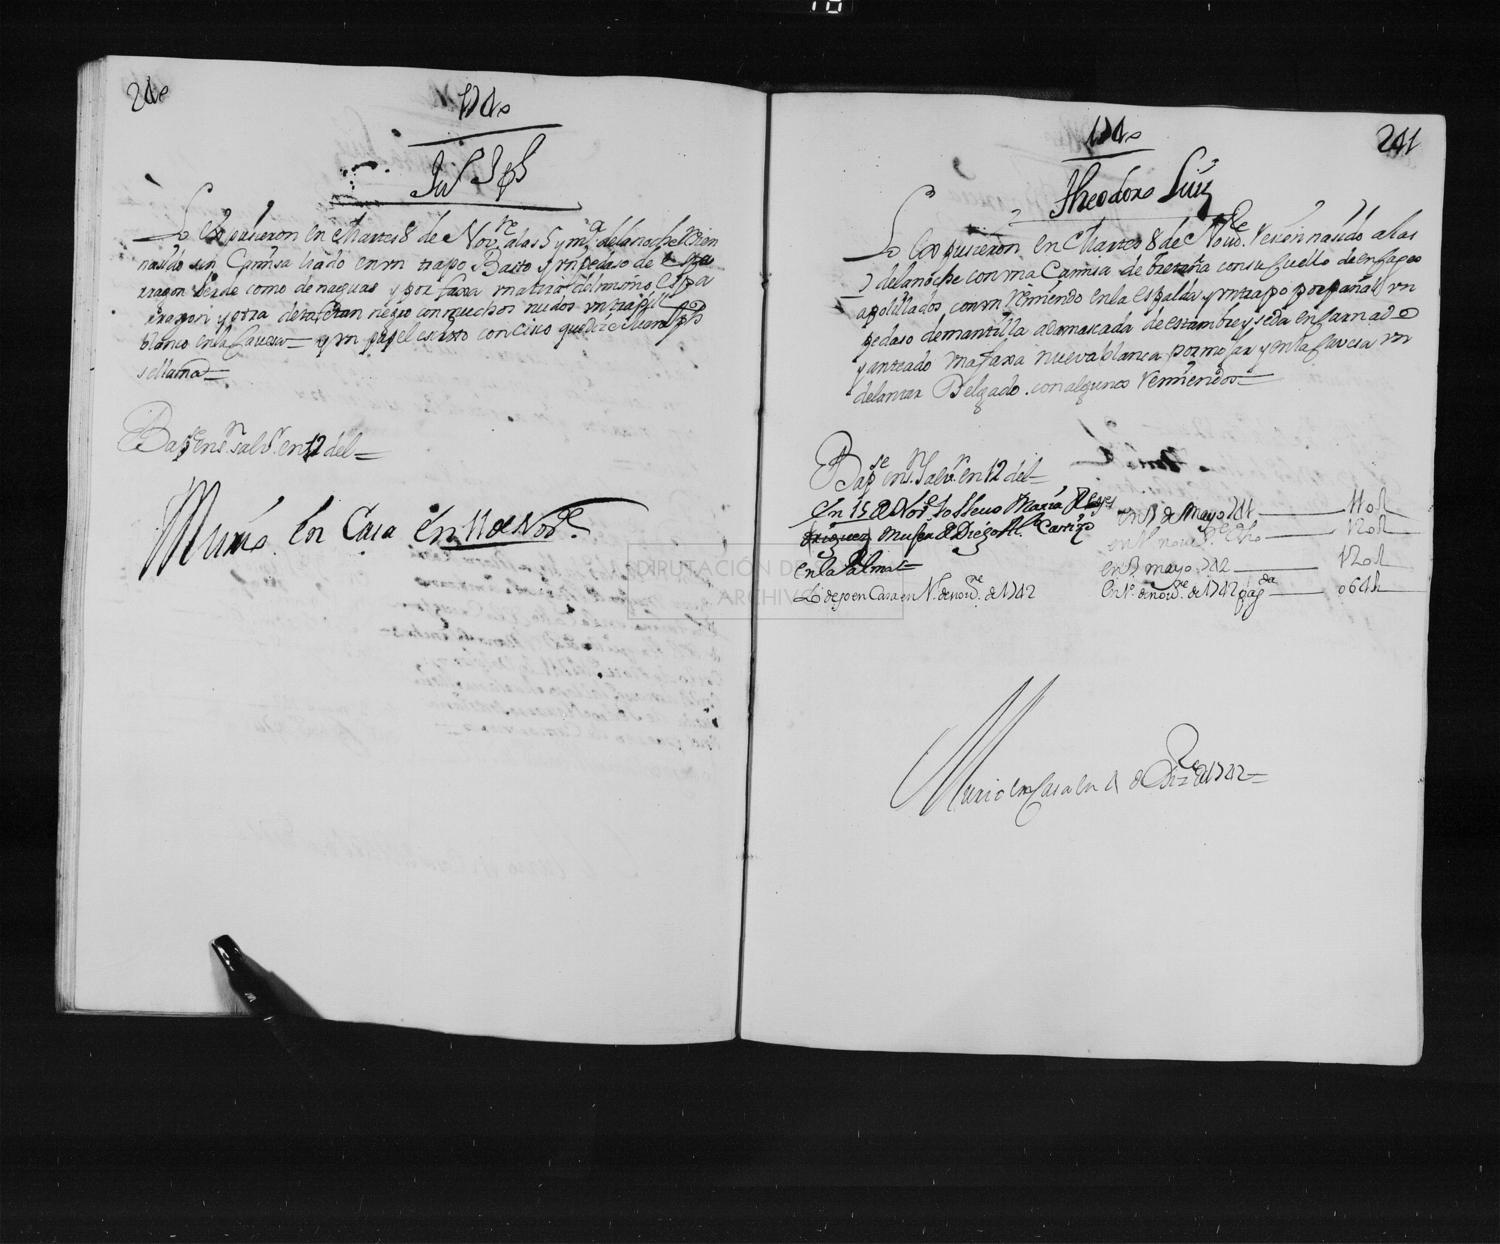 240
1740
Lo expusieron en Martes 8 de Novre a las 5 y ma de la noche Resien
nasido sin Camisa liado en un trapo Basto y un pedaso de
rragon verde como de naguas y por faxa
rragon y otra de tafetan negro con muchos nudos un trapillo
blanco en la Cavesa y un papel escrito con cisco que dize Juan Jph
se llama
Bapse en Sn Salvr en 12 del
Murio en Casa En 11 de Nove
241
1740
Theodoro Luiz
Lo expusieron en Martes 8 de Nove Resien nasido a las
7 de la noche con una Camisa de bretaña con su Cuello de encages
apolillados con un Remiendo en la Espalda y un trapo por pañal un
pedaso de mantilla adamascada de estambre y seda encarnado
y anteado una faxa nueva blanca por mojar y en la Cavesa un
delantar Delgado con algunos Remiendos
Bapse en Sn Salvr en 12 del
En 15 de Nove lo llevo Maria Reyes
muger de Diego Carrizo
en la Palma
Lo dejo en Casa en 1 de nove de 1742
en 1 de Mayo 741 110 R
en 1 nove de dho 120 R
en 1 mayo 742 120 R
en 1 de nove de 1742 pagda 064 R
DIPUTACIÓN DE
ARCHIVO
Murio en Casa en 4 de Dize de 1742